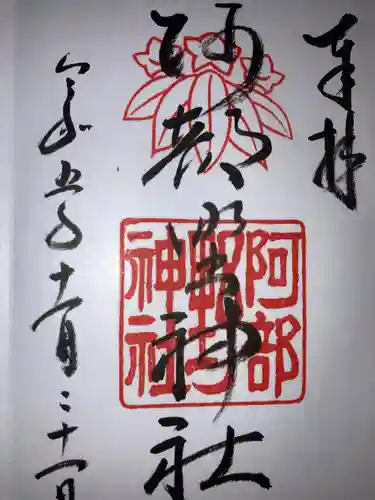 奉拝
阿部野神社
令和五年十一月二十一日
阿部野神社